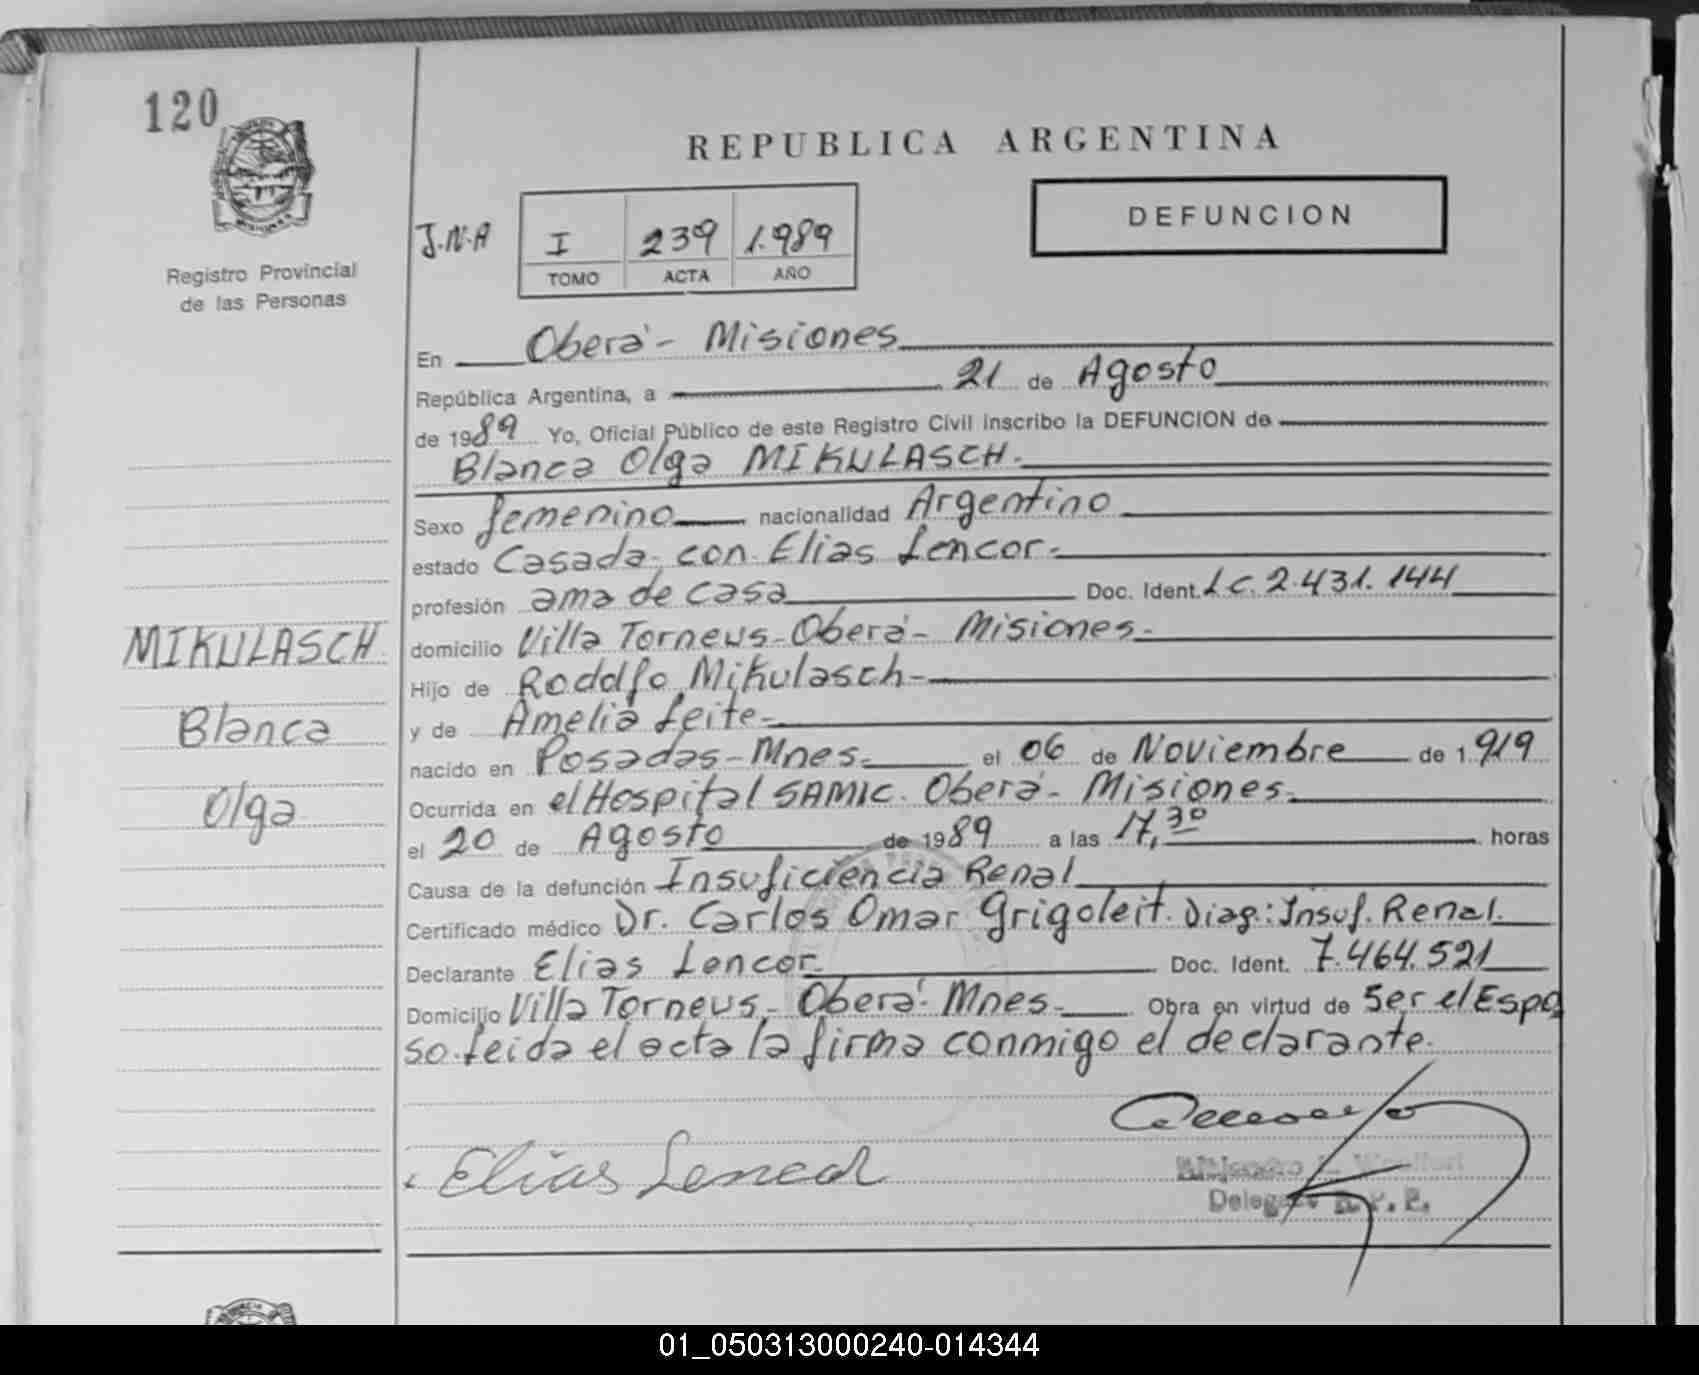 120
REPUBLICA ARGENTINA
Registro Provincial
de las Personas
J.N.A
I 239 1.989
TOMO ACTA AÑO
DEFUNCION
En Oberá - Misiones
República Argentina, a 21 de Agosto
de 1989 Yo, Oficial Público de este Registro Civil inscribo la DEFUNCION de
Blanca Olga MIKULASCH.
Sexo femenino nacionalidad Argentino
estado Casada con Elias Lencor.
profesión ama de casa Doc. Ident. LC. 2.431.144
domicilio Villa Torneus - Oberá - Misiones.
Hijo de Rodolfo Mikulasch
y de Amelia Leite
nacido en Posadas - Mnes. el 06 de Noviembre de 1.919
Ocurrida en el Hospital SAMIC. Oberá - Misiones.
el 20 de Agosto de 1989 a las 17,30 horas
Causa de la defunción Insuficiencia Renal
Certificado médico Dr. Carlos Omar Grigoleit. Diag.: Insuf. Renal.
Declarante Elias Lencor Doc. Ident. 7.464.521
Domicilio Villa Torneus - Oberá - Mnes. Obra en virtud de Ser el Espo
so. Leida el acta la firma conmigo el declarante.
MIKULASCH
Blanca
Olga
Elias Lencor
Delegado R.P.P.
01_050313000240-014344